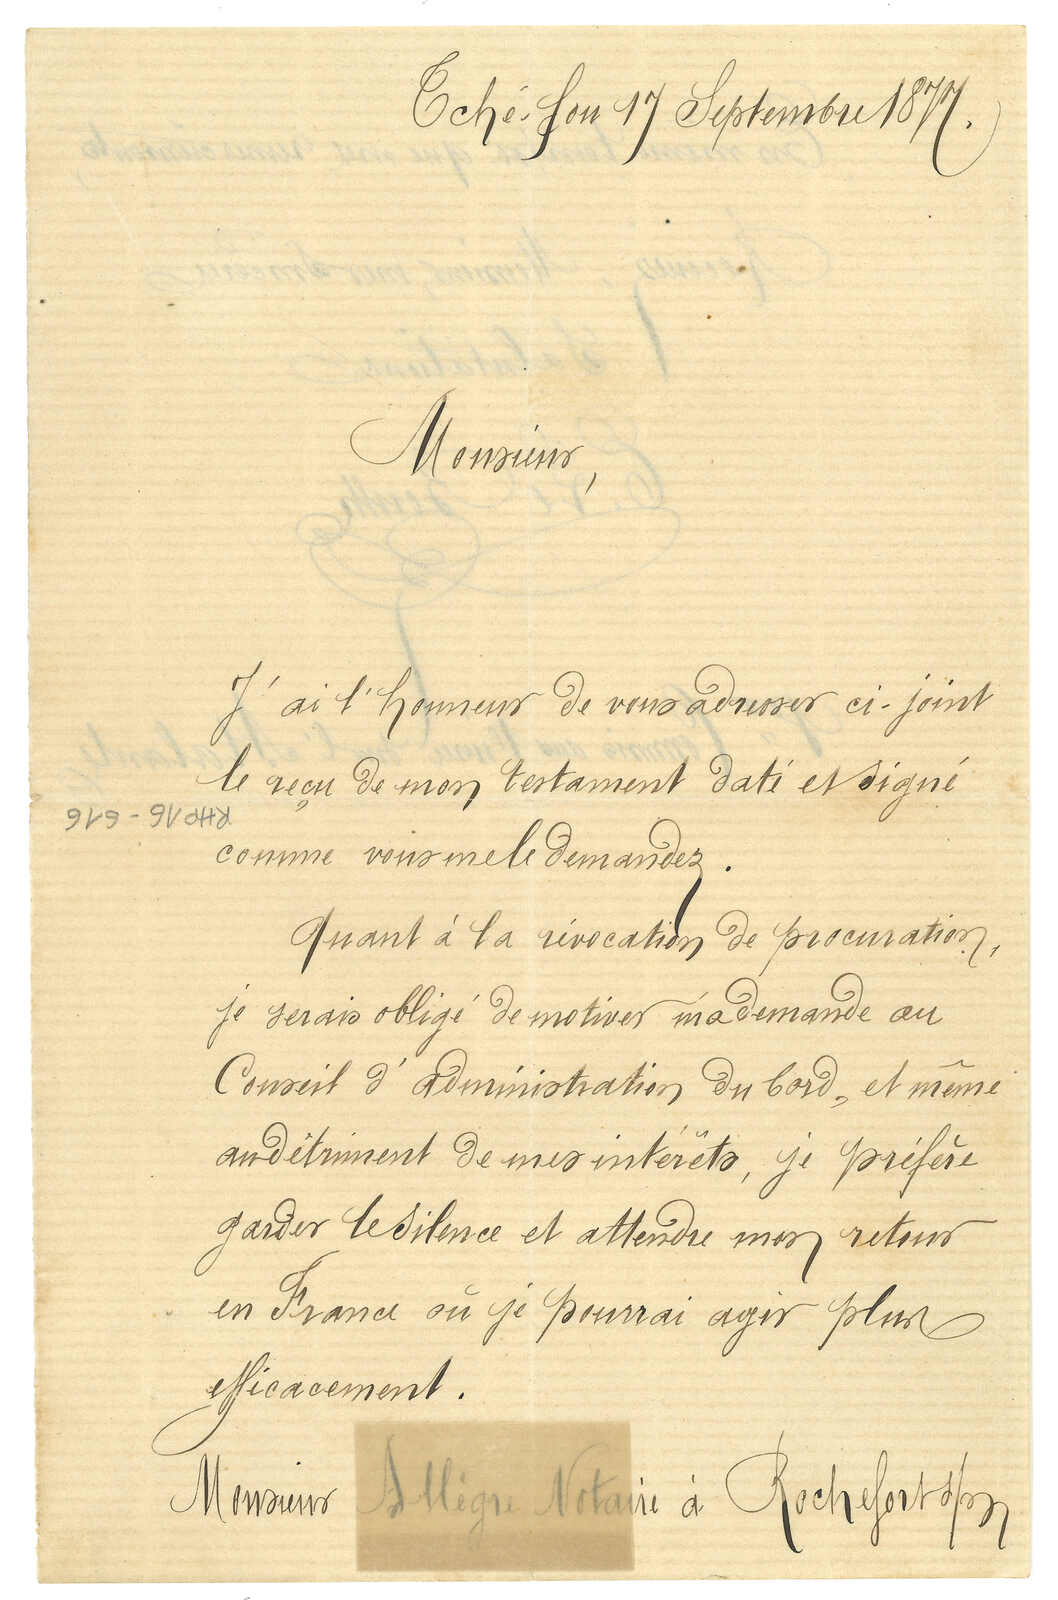 Tché-fou 17 Septembre 1877.
Monsieur,
J'ai l'honneur de vous adresser ci-joint
le reçu de mon testament daté et signé
RHP16-616
comme vous me le demandez.
Quant à la révocation de procuration,
je serais obligé de motiver ma demande au
Conseil d'administration du bord, et même
au détriment de mes intérêts, je préfère
garder le silence et attendre mon retour
en France où je pourrai agir plus
efficacement.
Monsieur Allègre Notaire à Rochefort s/m